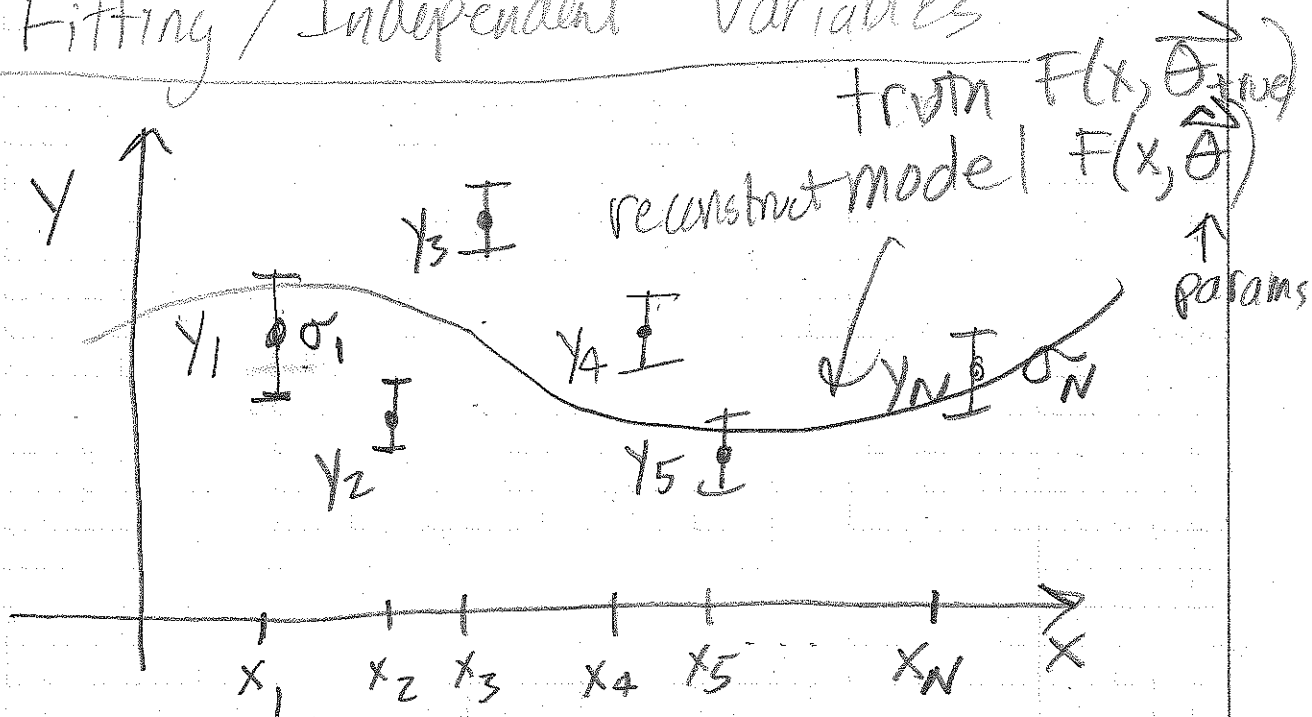 Fitting / Independent Variables
truth F(x, θ⃗true)
reconstruct model F(x, θ̂⃗)
params
Y
y3
y1 σ1
y4
yN σN
y2
y5
x1 x2 x3 x4 x5 .... xN X